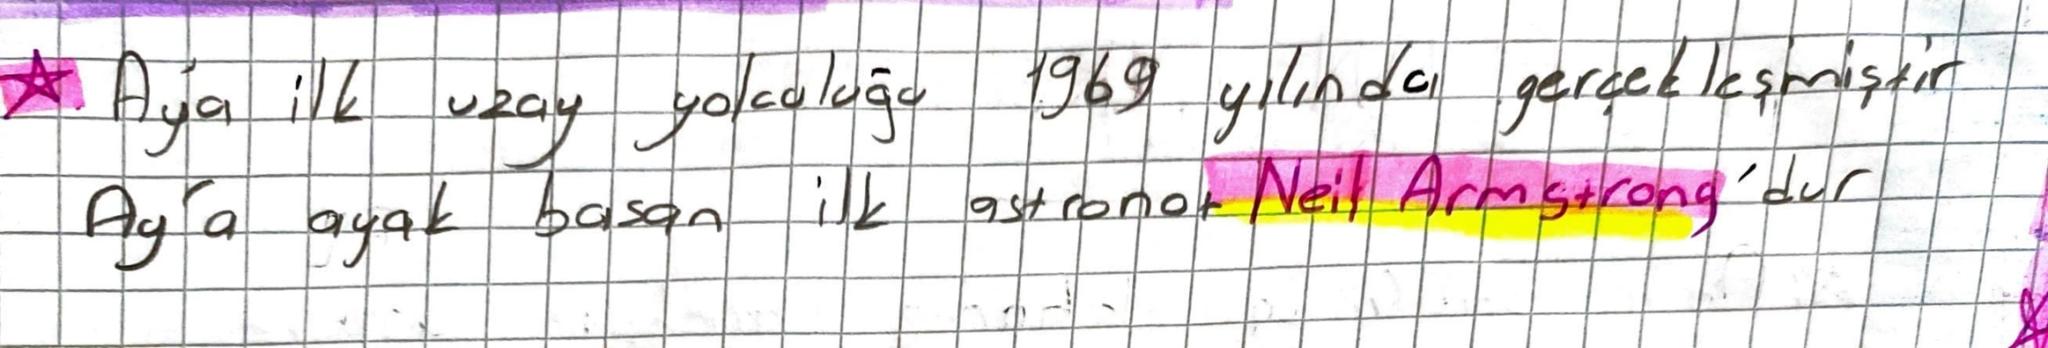 Ay'a ilk uzay yolculuğu 1969 yılında gerçekleşmiştir
Ay'a ayak basan ilk astronot Neil Armstrong'dur